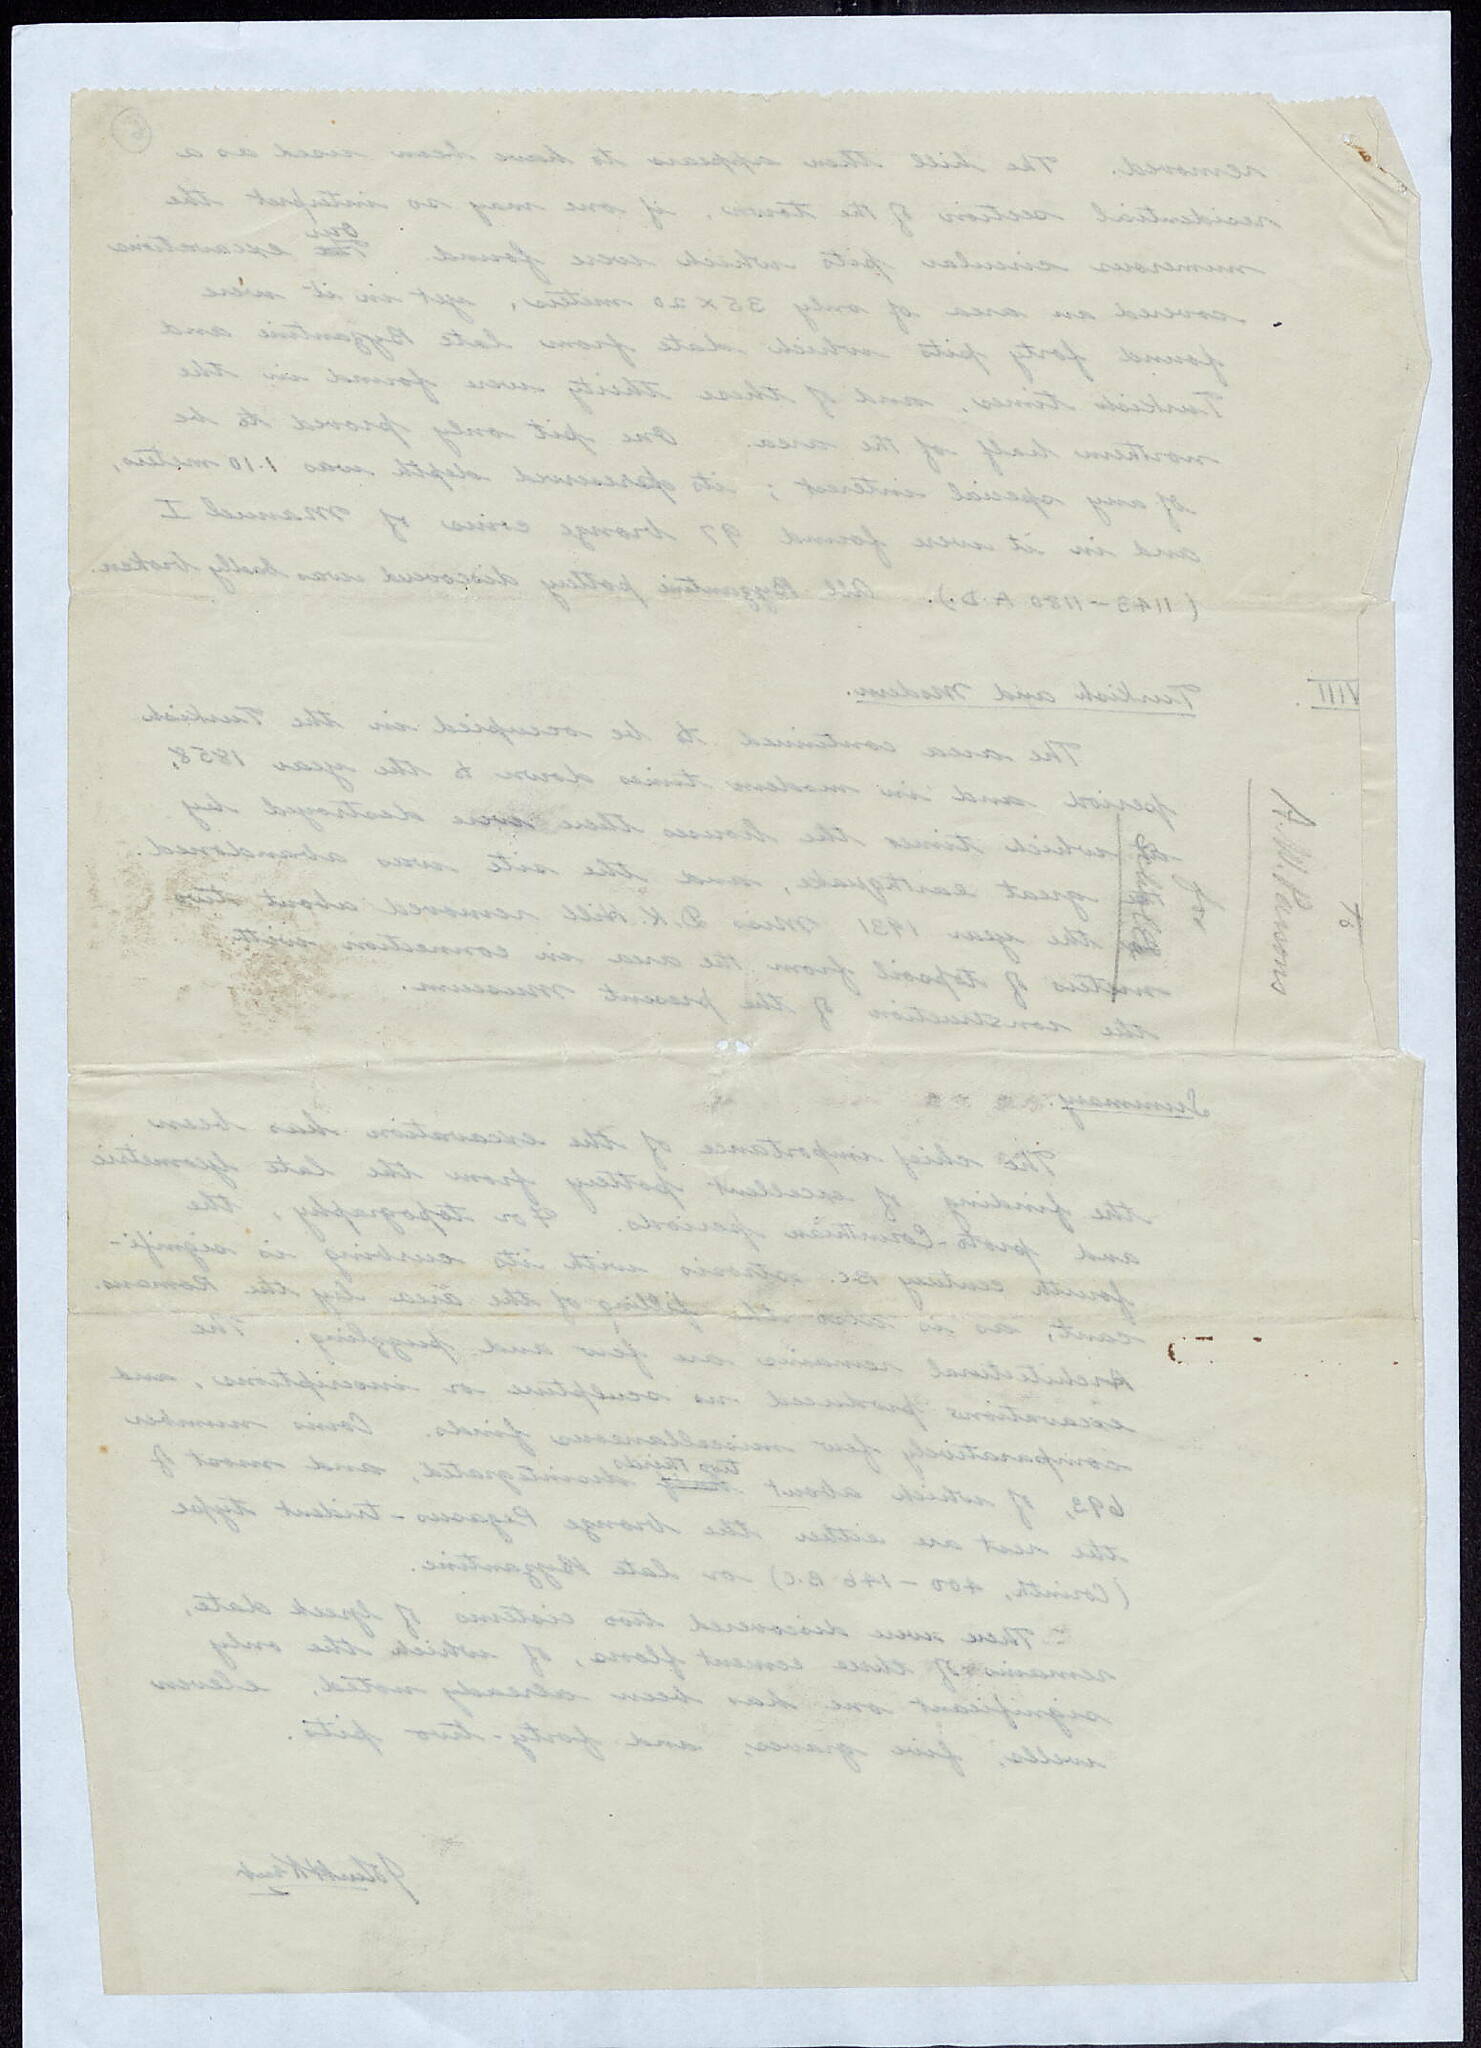 removed. The hill then appears to have been used as a
residential section of the town, if one may so interpret the
numerous circular pits which were found. The our excavations
covered an area of only 35 x 20 meters, yet in it were
found forty pits which date from late Byzantine and
Turkish times, and of these thirty were found in the
northern half of the area. One pit only proved to be
of any special interest; its preserved depth was 1.10 meters,
and in it were found 97 bronze coins of Manuel I
(1143-1180 A.D.). All Byzantine pottery discovered was badly broken.
VIII Turkish and Modern.
The area continued to be occupied in the Turkish
period and in modern times down to the year 1858,
at which time the houses there were destroyed by
great earthquake, and the site was abandoned.
In the year 1931 Miss D. K. Hill removed about two
meters of topsoil from the area in connection with
the construction of the present Museum.
Summary.
The chief importance of the excavation has been
the finding of excellent pottery from the late Geometric
and proto-Corinthian periods. For topography, the
fourth century B.C. stroses with its curbing is signifi-
cant, as is the filling of the area by the Romans.
Architectural remains are few and puzzling. The
excavations produced no sculpture or inscriptions, and
comparatively few miscellaneous finds. Coins number
693, of which about two thirds disintegrated, and most of
the rest are either the bronze Pegasus-trident type
(Corinth, 400-146 B.C.) or late Byzantine.
There were discovered two cisterns of Greek date,
remains of three cement floors, of which the only
significant one has been already noted, eleven
wells, five graves, and forty-two pits.
to
A. W. Parsons
for